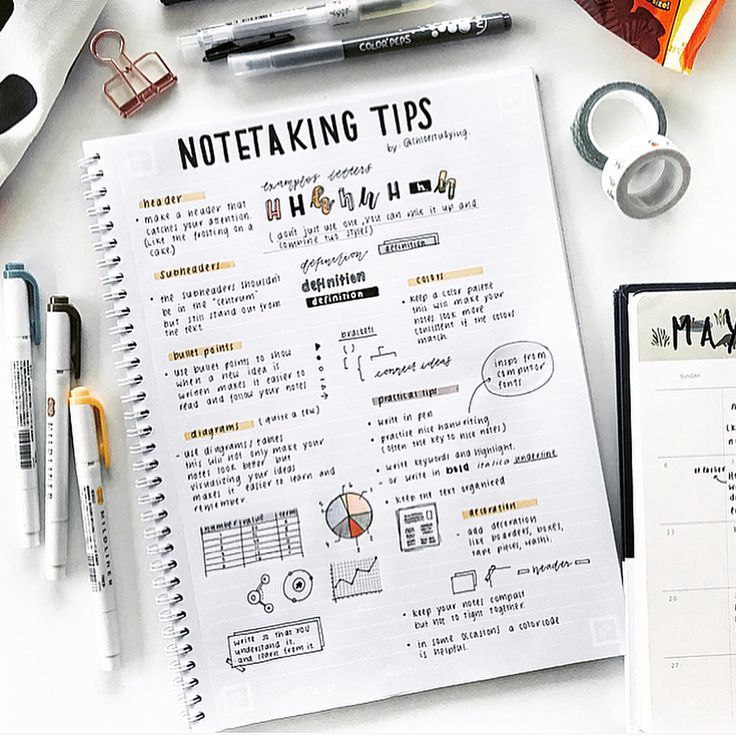 COLOR'PEPS
NOTETAKING TIPS
by: @chloestudying.
header
• make a header that
catches your attention.
(Like the frosting on a
cake)
examples letters
H H h h h H h h
(don't just use one, you can mix it up and
combine two styles)
subheaders
• the subheaders shouldn't
be in the "centrum"
but still stand out from
the text.
definition
definition
definition
definition
colors
• keep a color palette
this will make your
notes look more
consistent if the colors
match
bullet points
• use bullet points to show
when a new idea is
written makes it easier to
read and follow your notes
brackets
connect ideas
inspo from
computor
fonts
diagrams (quite a few)
- use diagrams/tables
this will not only make your
notes look better but
visualizing your ideas
makes it easier to learn and
remember.
practical tips
• write in pen
• practise nice handwriting
(often the key to nice notes)
• write keywords and highlight.
- or write in bold italica underline
• keep the text organized
number value term
decoration
- add decoration
like boarders, boxes,
tape pieces, washi.
header
write so that you
understand it.
and learn from it
• keep your notes compact
but not to tight together.
• in some occasions a colorcode
is helpful.
MAY
SUNDAY
6
13
20
27